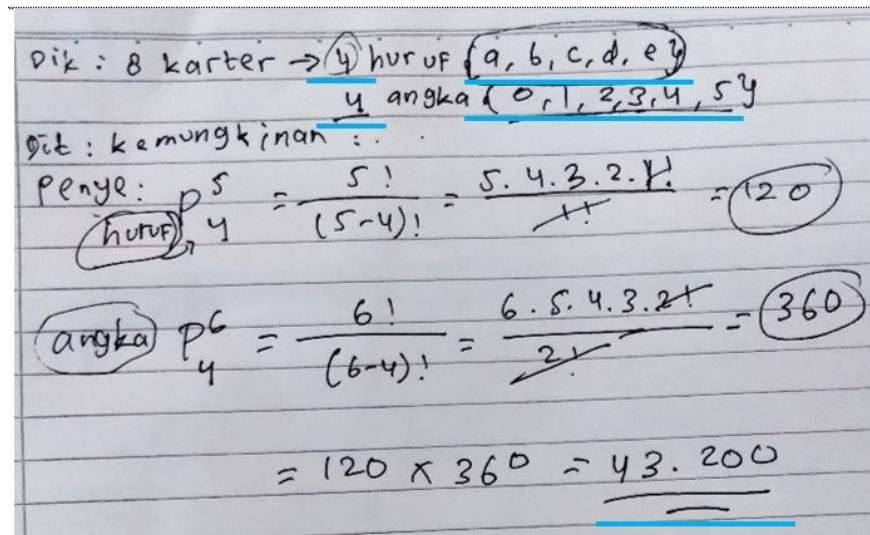 Dik : 8 karter → 4 huruf {a, b, c, d, e}
4 angka { 0, 1, 2, 3, 4, 5 }
Dit : kemungkinan : . .
Penye : huruf P 5 4 = 5! / (5-4)! = 5. 4. 3. 2. 1! / 1! = 120
angka P 6 4 = 6! / (6-4)! = 6. 5. 4. 3. 2! / 2! = 360
= 120 x 360 = 43.200